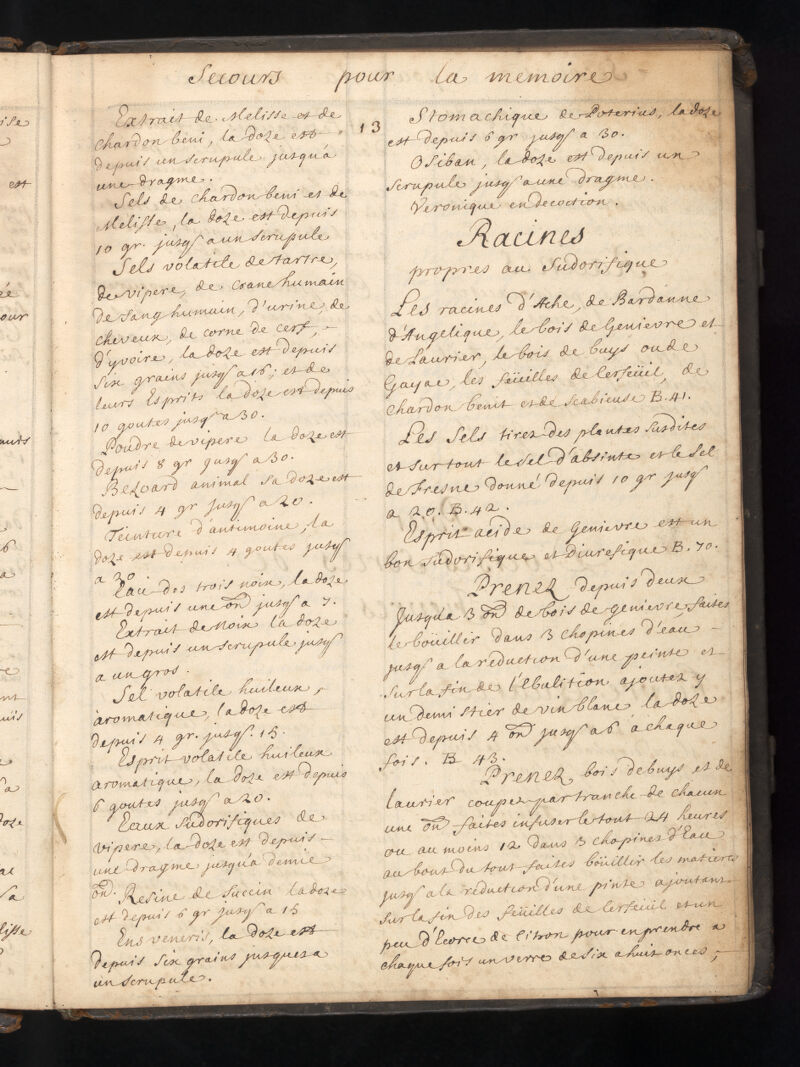 Secours pour la memoire
13
Extrait de Melisse et de
chardon beni, la doze est
depuis un scrupule jusqu'a
une dragme.
Sels de chardon beni et de
Melisse, la doze est depuis
10 gr. jusqs a un scrupule
Sels volatile de tartre,
de vipere, de crane humain
de sang humain, d'urine, de
cheveux, de corne de cerf, -
d'yvoire, la doze est depuis
six grains jusqs a 16; et de
leurs Esprits la doze est depuis
10 goutes jusqs a 30.
Poudre de vipere la doze est
depuis 8 gr jusqs a 30.
Bezoard animal sa doze est
depuis 4 gr jusqs a 20.
Teinture d'antimoine, la
doze est depuis 4 goutes jusqs
a 20
Eau des trois noix, la doze
est depuis une on jusqs a 7.
Extrait de noix la doze
est depuis un scrupule jusqs
a un gros.
Sel volatile huileux,
aromatique, la doze est
depuis 4 gr. jusqs. 15.
Esprit volatile huileux
aromatique, la doze est depuis
6 goutes jusqs a 20.
Eaux Sudorifiques de
vipere, la doze est depuis -
une dragme jusqu'a demie
on. Resine de Succin la doze
est depuis 6 gr jusqs a 15
Ens veneris, la doze est
depuis six grains jusques a
un scrupule.
Stomachique de Poterius, la doze
est depuis 6 gr jusqs a 30.
Osiban, la doze est depuis un
scrupule jusqs a une dragme.
Veronique en decoction.
Racines
propres au Sudorifique
Les racines d'Ache, de Bardanne
d'Angelique, le bois de Genievre et
de Laurier, le bois de buys ou de
Gayac, les feüilles de Cerfeüil, de
chardon benit et de scabieuse B. 41.
Les Sels tirez des plantes susdites
et sur tout le sel d'absinte et le sel
de Fresne donné depuis 10 gr jusqs
a 20. B. 42.
Esprit acide de Genievre est un
bon sudorifique et Diuresique B. 70.
Prenez depuis deux
jusqu'a 3 on de bois de genievre, faites
le boüillir dans 3 chopines d'eau -
jusqs a la reduction d'une peinte et
sur la fin de l'Ebulition ajoutez y
un demi stier de vin blanc la doze
est depuis 4 on jusqs a 6 a chaque
fois. B 43.
Prenez bois de buys et de
laurier coupez par tranche de chacun
une on faites infuser le tout 24 heures
ou au moins 12 dans 3 chopines d'Eau
au bout du tout faites boüillir les matieres
jusqs a la reduction d'une pinte ajoutant
sur la fin des feüilles de Cerfeüil et un
peu d'Ecorce de Citron pour en prendre a
chaque fois un verre de six a huit onces, -